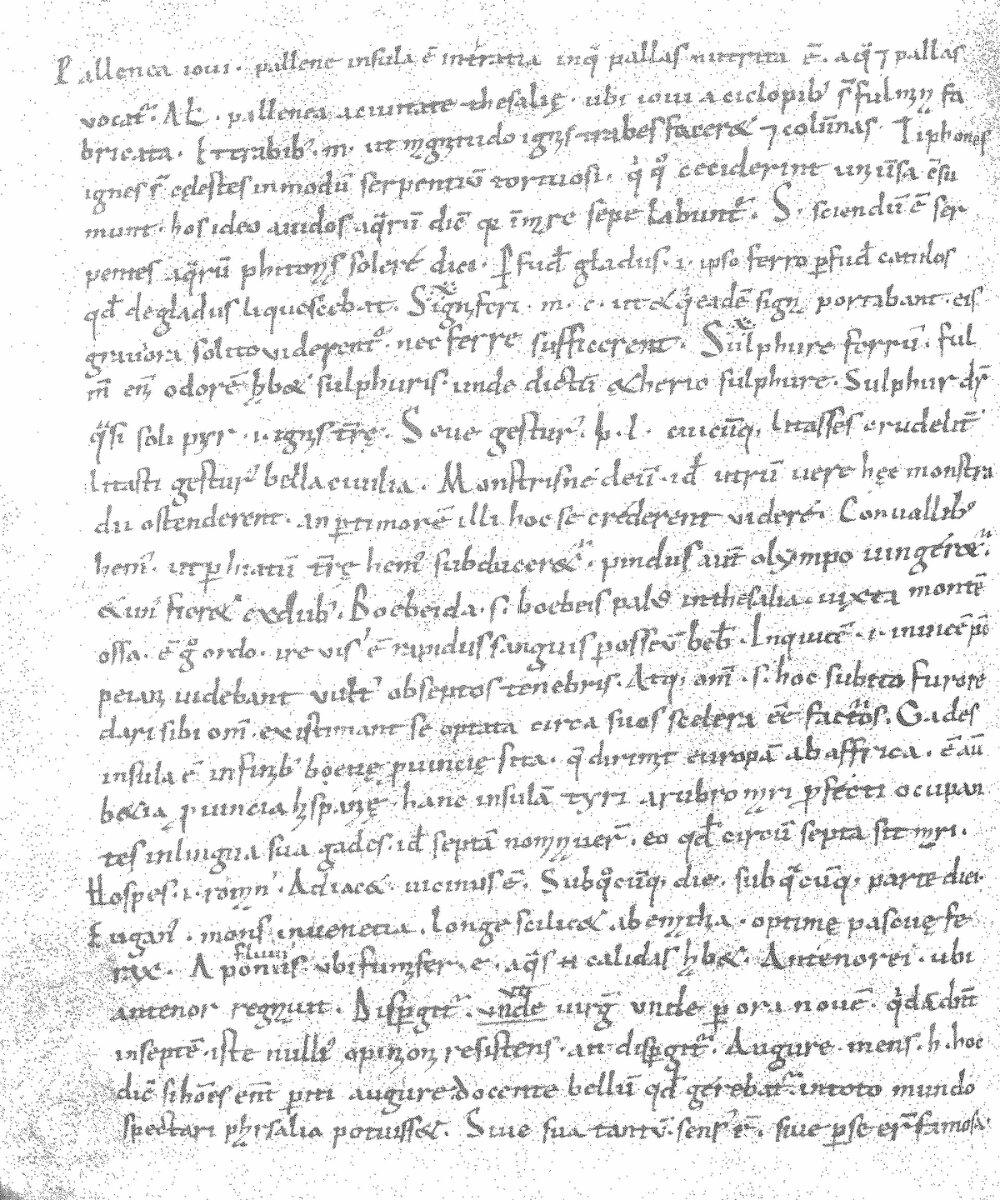 Pallenea ioui· pallene insula ē intratia inq̄ pallas nutrita ē. aq̄ ⁊ pallas
vocat᷑. AŁ· pallenea aciuitate thesalię· ubi ioui a ciclopib' s̄ fulmin fa
bricata· Et trabib'·m· ut magnitudo ignis trabes facer& ⁊ colūnas Tiphones
ignes s̄ cęlestes inmodū serpentiū tortuosi· q' q° ceciderint
munt· hos ideo auidos aq̄rū dic̄ in sepe labunt᷑. S· sciendū ē ser
pentes aq̄rū phitonis soleré dici· ꝑfud̄ gladus·i· ipso ferro ꝑfud̄ catilos
qd̄ degladus liquescebat. Signiferi·m·c·ut & q' eadē signa portabant eis
grauiora solito viderent᷑·nec ferre sufficerent· Sulphure ferrū· ful
m̄ eni odorē hb& sulphuris·unde dictū ęcherio sulphure·Sulphur dr̄
q̄si soli pyr·i·ignis tr̄ę· Seue gestur'. h·l· cuicūq, litasses crudelit᷑
litasti gestur' bella ciuilia. Monstrisne deū·id̄ utrū uere hęc monstra
dii ostenderent·an ꝑtimorē illi hoc se crederent videré· Conuallib'
hem'·ut ꝑ hiatū tr̄ę hem' subducer&᷑·pindus aut̄ olympo iunger&᷑.
& uni' fier& exdub'. Boebeida·s·boebeis palus inthesalia iuxta montē
ossa·ē ḡ ordo·ire vis' ē rapidus sanguis ꝑ ossęū beb̄·Inquicē·i·inuicē
peiam uidebant vult' obseptos tenebris. Atq; om̄·s·hoc subito furore
dari sibi om̄·existimant se optata circa suos scelera ēē factos. Gades
insula ē infinib' boetię ꝓuincię sita·q̄ dirimit europā ab affrica·ē aū
b&ia ꝓuincia hispanię·hanc insulā tyri arubro mari ꝓfecti occupan
tes inlingua sua gades·id̄ septā nominauer̄·eo qd̄ circū septa sit mari.
Hospes·i·roman'· Adiac&·uicinus ē. Subq°cūq, die·sub q̄cūq, parte diei
Eugan'·mons inuenetia·longe scilic& ab emathia·optimę pascuę fe
rax· Aponus fluui' vbi fumifer·e·aq̄s n̄ calidas hb&· Antenorei·ubi
antenor regnauit. Dispgit᷑. unde uirḡ vnde ꝑ ora nouē·
inseptē·iste nulli' opinioni resistens·ait dispgit᷑· Augure·mens·h·hoc
dic̄ si hōēs ent̄ ꝑiti augure docente bellū qd̄ gerebat᷑ intoto mundo
spectari pharsalia potuiss&. Siue sua tantū·sens' ē. siue ꝑse er̄ famosa